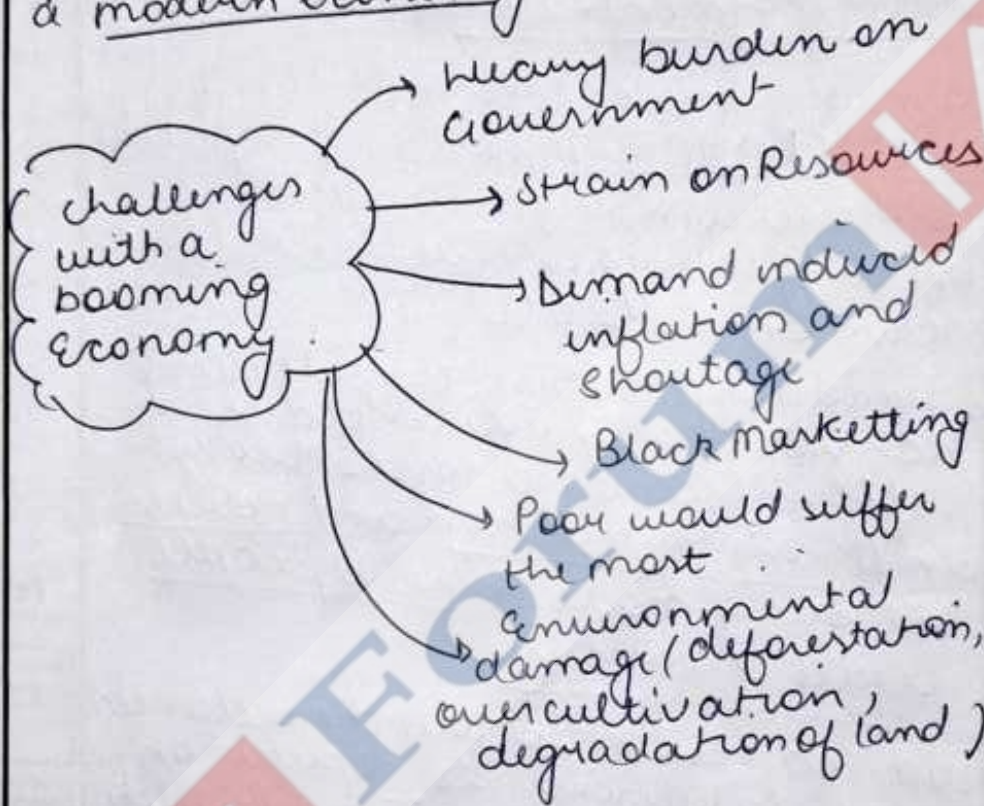 a modern
challenges
with a
booming
Economy.
Heavy burden on
Government
Strain on Resources
Demand induced
inflation and
shortage
Black Marketting
Poor would suffer
the most.
Environmental
damage (deforestation,
overcultivation,
degradation of land)
Forum